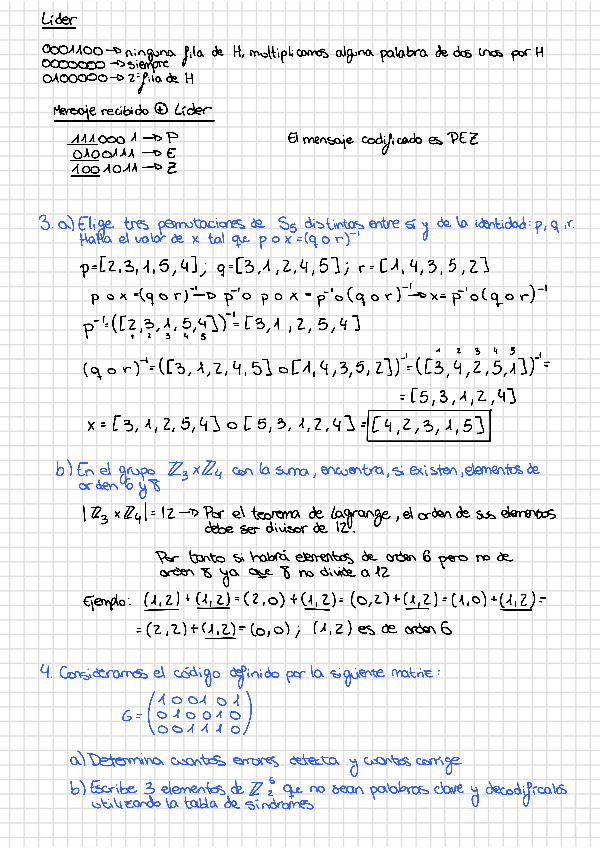 Líder
0001100 → ninguna fila de H, multiplicamos alguna palabra de dos unos por H
0000000 → siempre
0100000 → 2ª fila de H
Mensaje recibido ⊕ Líder
1110001 → P
El mensaje codificado es PEZ
0100111 → E
1001011 → Z
3. a) Elige tres permutaciones de S₅ distintas entre sí y de la identidad: p, q, r.
Halla el valor de x tal que p o x = (q o r)⁻¹
p=[2,3,1,5,4]; q=[3,1,2,4,5]; r=[1,4,3,5,2]
p o x = (q o r)⁻¹ → p⁻¹ o p o x = p⁻¹ o (q o r)⁻¹ → x = p⁻¹ o (q o r)⁻¹
p⁻¹=([2,3,1,5,4])⁻¹=[3,1,2,5,4]
1 2 3 4 5
1 2 3 4 5
(q o r)⁻¹=([3,1,2,4,5] o [1,4,3,5,2])⁻¹=([3,4,2,5,1])⁻¹=
=[5,3,1,2,4]
x = [3,1,2,5,4] o [5,3,1,2,4] = [4,2,3,1,5]
b) En el grupo ℤ₃×ℤ₄ con la suma, encuentra, si existen, elementos de
orden 6 y 8
|ℤ₃×ℤ₄|=12 → Por el teorema de Lagrange, el orden de sus elementos
debe ser divisor de 12.
Por tanto si habrá elementos de orden 6 pero no de
orden 8 ya que 8 no divide a 12
Ejemplo: (1,2)+(1,2)=(2,0)+(1,2)=(0,2)+(1,2)=(1,0)+(1,2)=
=(2,2)+(1,2)=(0,0); (1,2) es de orden 6
4. Consideramos el código definido por la siguiente matriz:
1 0 0 1 0 1
G= 0 1 0 0 1 0
0 0 1 1 1 0
a) Determina cuantos errores detecta y cuantos corrige
b) Escribe 3 elementos de ℤ₂⁶ que no sean palabras clave y decodifícalos
utilizando la tabla de síndromes